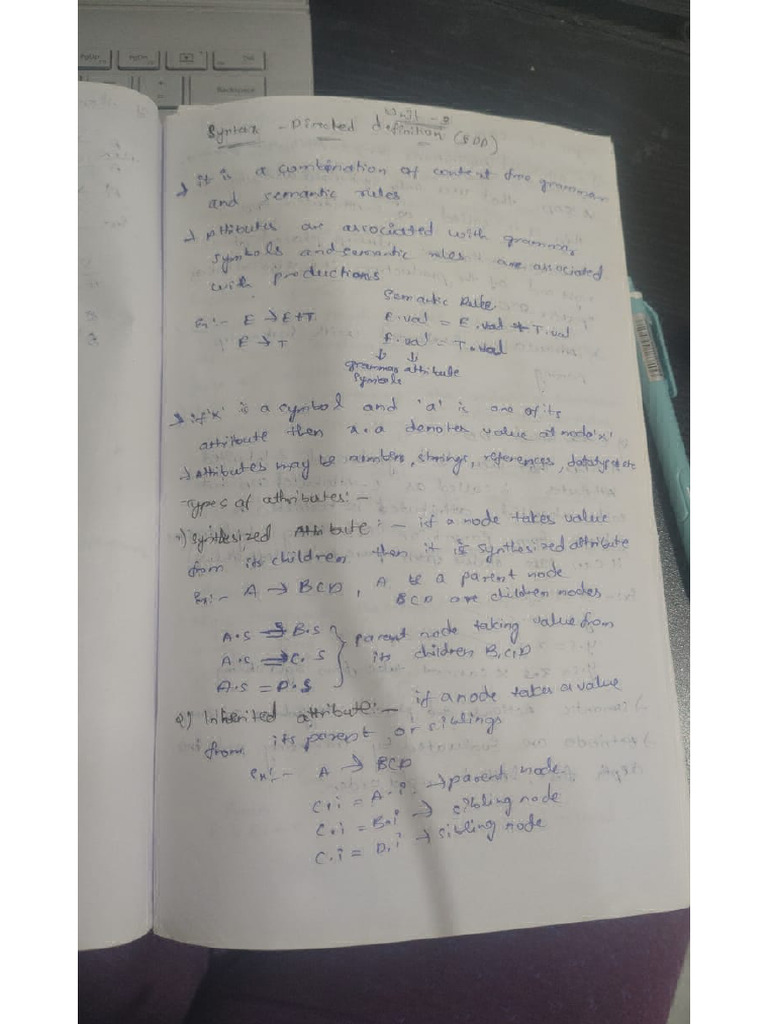 Unit - 3
Syntax - Directed definition (SDD)
→ it is a combination of context free grammar
and semantic rules
→ Attributes are associated with grammar
symbols and semantic rules are associated
with productions
Semantic Rule
Ex:- E → E+T E.val = E.val + T.val
E → T E.val = T.val
↓ ↓
grammar attribute
symbols
→ if 'x' is a symbol and 'a' is one of its
attribute then x.a denotes value at node 'x'
→ Attributes may be numbers, strings, references, datatypes etc
Types of attributes:-
1) Synthesized Attribute :- if a node takes value
from its children then it is synthesized attribute
Ex:- A → BCD, A be a parent node
BCD are children nodes
A.s = B.s
A.s = C.s } parent node taking value from
its children B,C,D
A.s = D.s
2) Inherited attribute:- if a node takes a value
from its parent or siblings
Ex:- A → BCD
C.i = A.i → parent node
C.i = B.i → sibling node
C.i = D.i → sibling node